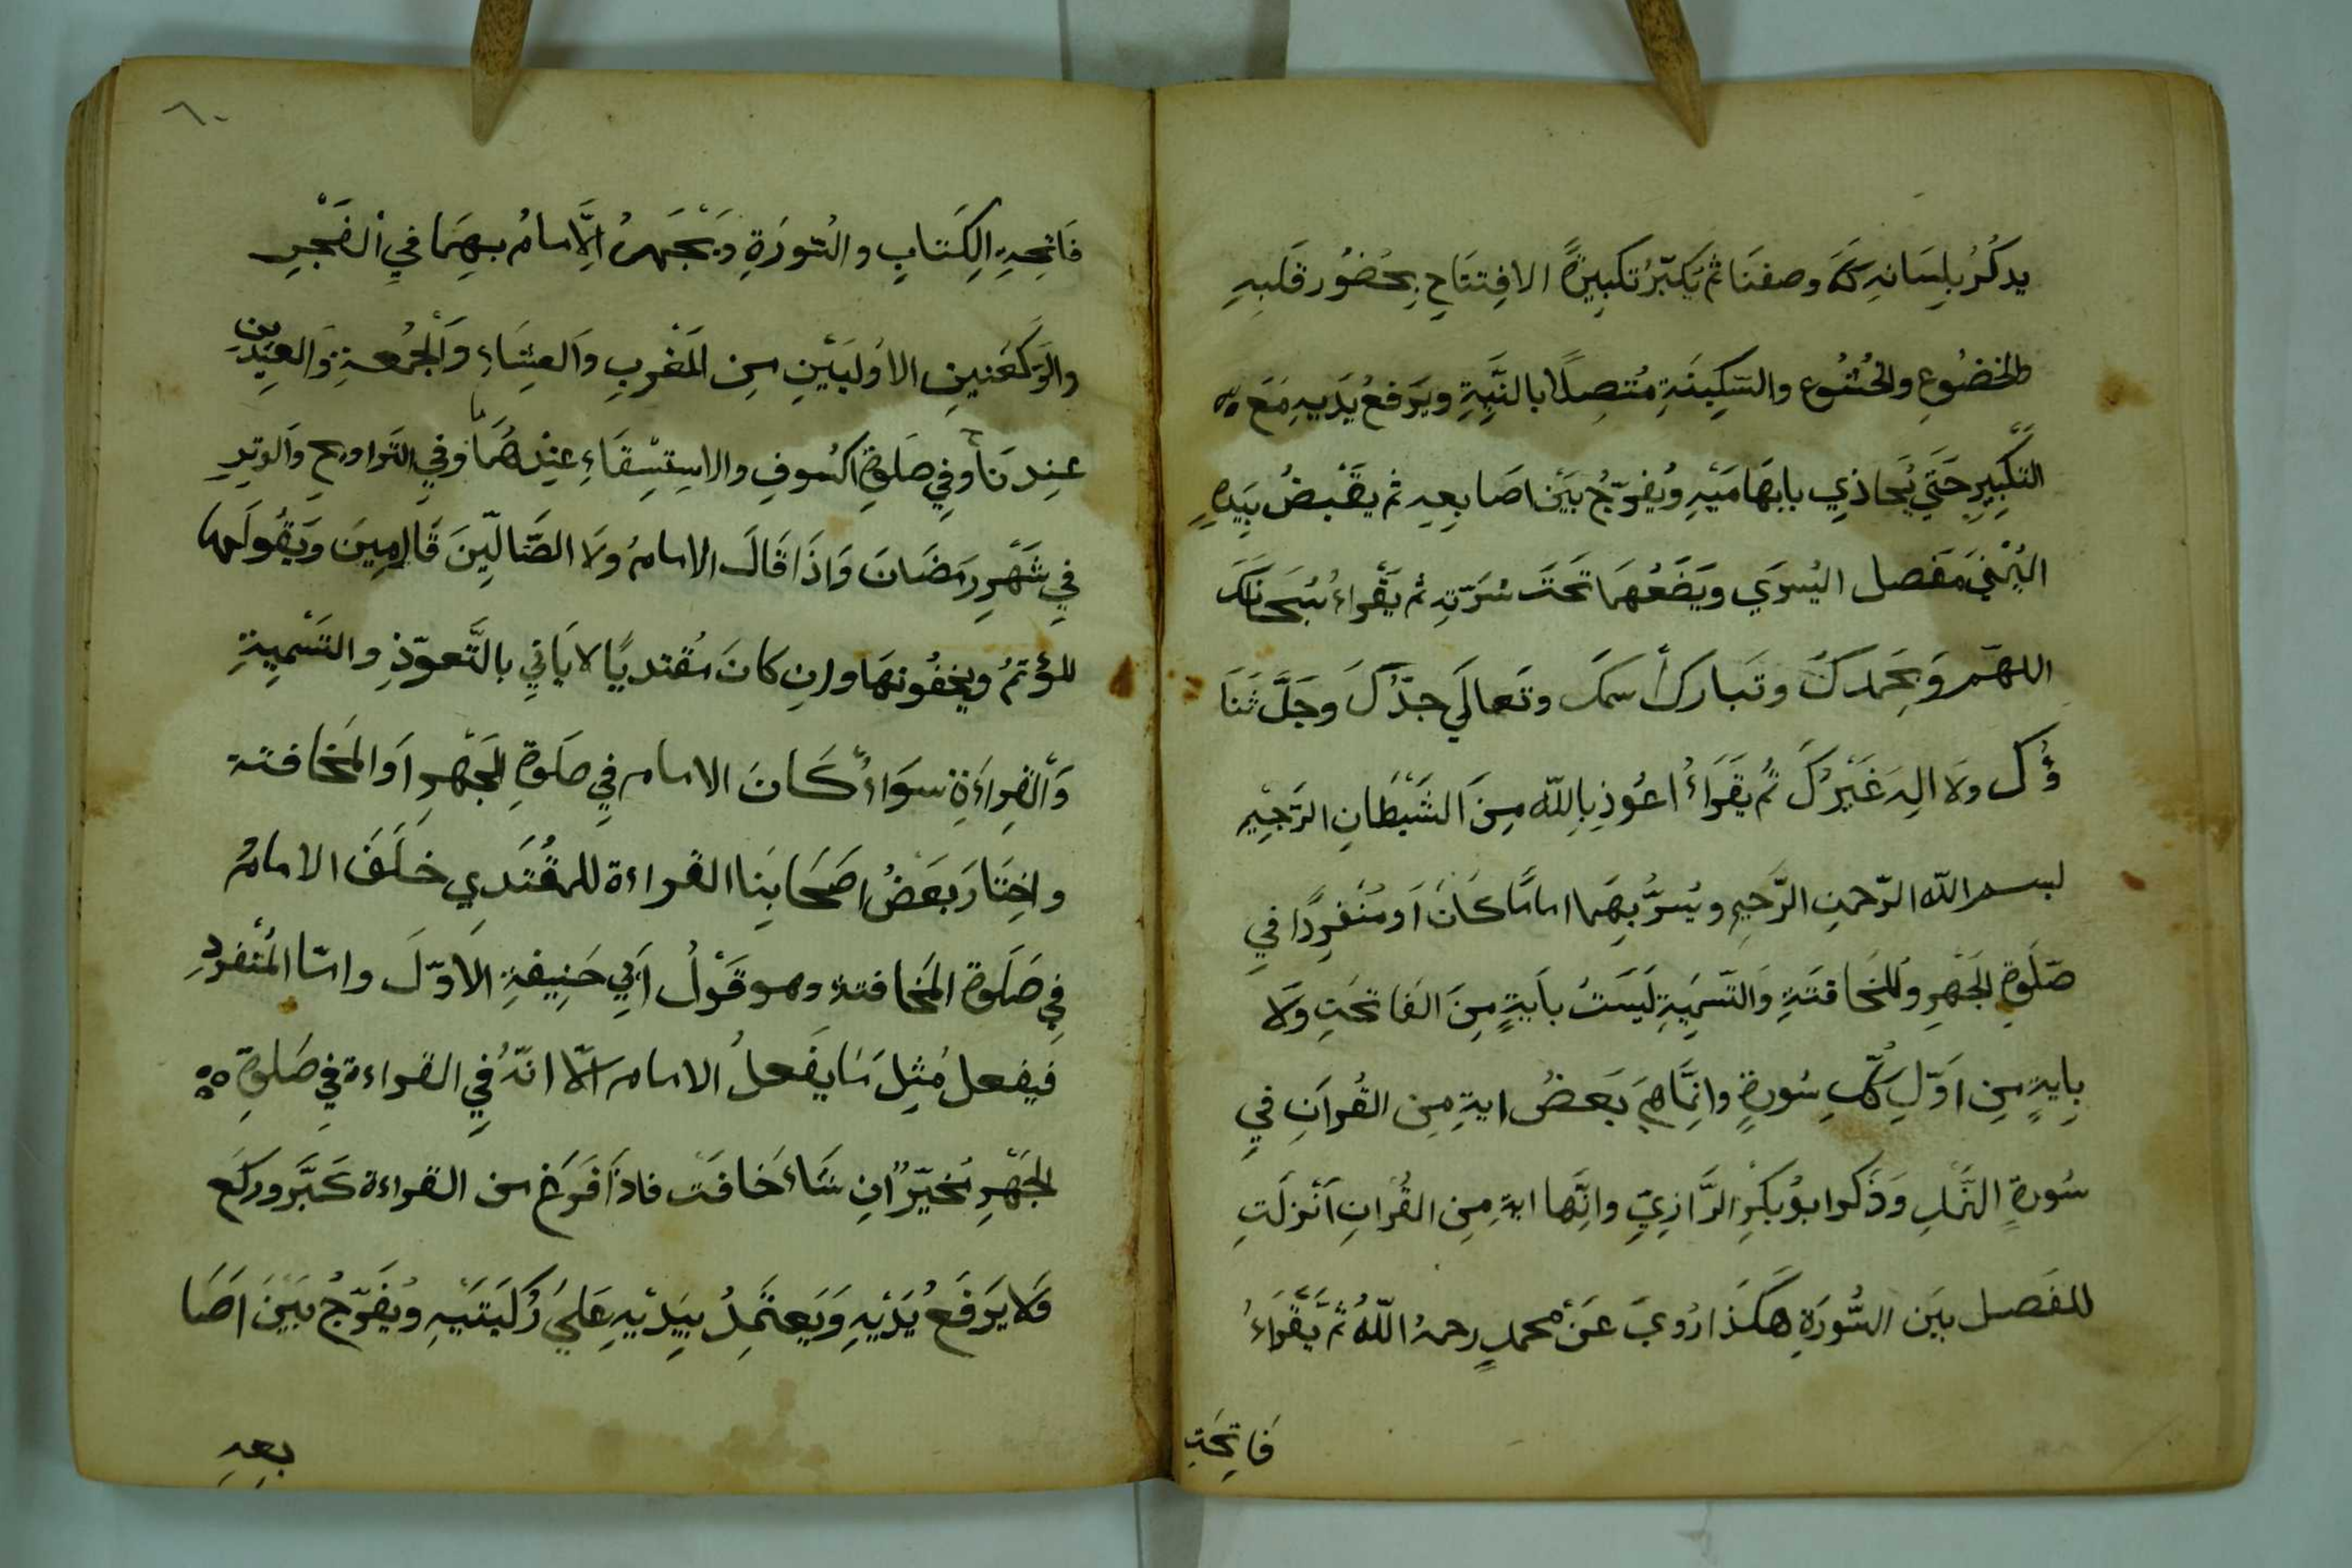 يدكُرُ بِلِسَانِهِ كَمَا وصفنَا ثم يُكبّرُ تكبِيرَةً الافِتتَاحِ بِحُضُورِ قَلبِهِ
والخضُوعِ والخُشُوعِ والسَّكِينَةِ مُتصِلاً بالنّيةِ ويَرفعُ يَدَيهِ مَعَ
التكبِيرِ حَتّي يُحَاذِي بابهَامَيْهِ وَيُفرّجُ بَيْن اصَابِعِهِ ثم يقْبضُ بيَدِهِ
اليُمْنَي مَفصل اليُسرَي ويَضَعُهمَا تَحتَ سُرّتِهِ ثم يَقْراءُ سُبحَانَكَ
اللهمّ وَبحَمدكَ وتَباركَ أسمكَ وتَعالَي جدّكَ وجَلَّ ثَنَا
ؤُكَ ولَا الِهَ غَيْرُكَ ثُم يقَرَاءُ اعُوذ بِاللّه مِنَ الشَيْطَانِ الرّجِيْمِ
بسم الله الرّحمن الرّحيم ويُسرُّ بِهِمَا امامًا كَانَ اَو مُنفرِدًا فِي
صَلَوةِ الجَهْرِ والمُخَافتَةِ وَالتّسمِيةِ لَيسَتُ باَيةٍ مِنَ الفَاتحَتِ ولَا
بِايةٍ مِن اوَّلِ كُلِّ سُورةٍ وانِّمَا هِيَ بَعضُ ايةِ مِن القُراَنِ فيِ
سُورةِ النَّملِ وَذَكَرا بوُ بكْرِ الرَّازيِّ وانِّها ايةِ مِن القُرانِ اَنْزِلَتِ
للفَصل بَيَن السُّورَةِ هكَذَا رُويَ عَنْ محمدٍ رحمهُ اللّهُ ثُم يَقْرَاءُ
فَاتِحَتِ
٦٠
فَاتِحِةِ الِكِتابِ والسُّورَةِ ويَجْهَرُ الِامامُ بهِمَا فيِ الفَجْرِ
والرّكعَتينِ الاوُليَيْنِ مِن المَغْربِ والعشَاءِ والجُمُعةِ والعِيْدَينِ
عِندنَا وفِي صَلَوةِ الكسُوفِ والاستِسْقَاءِ عِنْدهُمَا وفيِ التَراويحِ وَالوتِرِ
فيِ شَهْرِ رمَضَانَ وَاذَا قَالَ الامامُ ولَا الضَّالِّينَ قَالَ امِينَ وَيَقُولَهَا
المؤتمُ ويخفُونهَا وانِ كانَ مُقتديًا لا يَاتيِ بالتَّعوّذِ والتَسْمِيةِ
وَالقِراءَةِ سوَاءٌ كَانَ الامام فيِ صلَوةِ الجَهْرِ اَو المَخافتة
واخِتَارَ بَعَضُ اصَحَابِنا القراءة للمقُتَدِي خَلَفَ الامامُ
فيِ صَلَوة المَخافتةِ وهو قَوْلُ اَبِي حَنِيفةِ الاَوّلَ وامّا المُنْفردِ
فيفعل مُثِلَ مَا يفَعلُ الامام الّا انّهُ فيِ القراءة فيِ صَلوةِ
الجَهْرِ مُخيّرٌ انِ شَاءَ خَافَتَ فاذَا فَرَغَ من القراءة كَبَّر وركَع
وَلَا يَرفَعُ يُدَيْهِ وَيَعتَمِدُ بيَدَيْهِ عَليَ رُكبَتَيْهِ ويُفَرّجُ بَيْنَ اصَا
بعِهِ